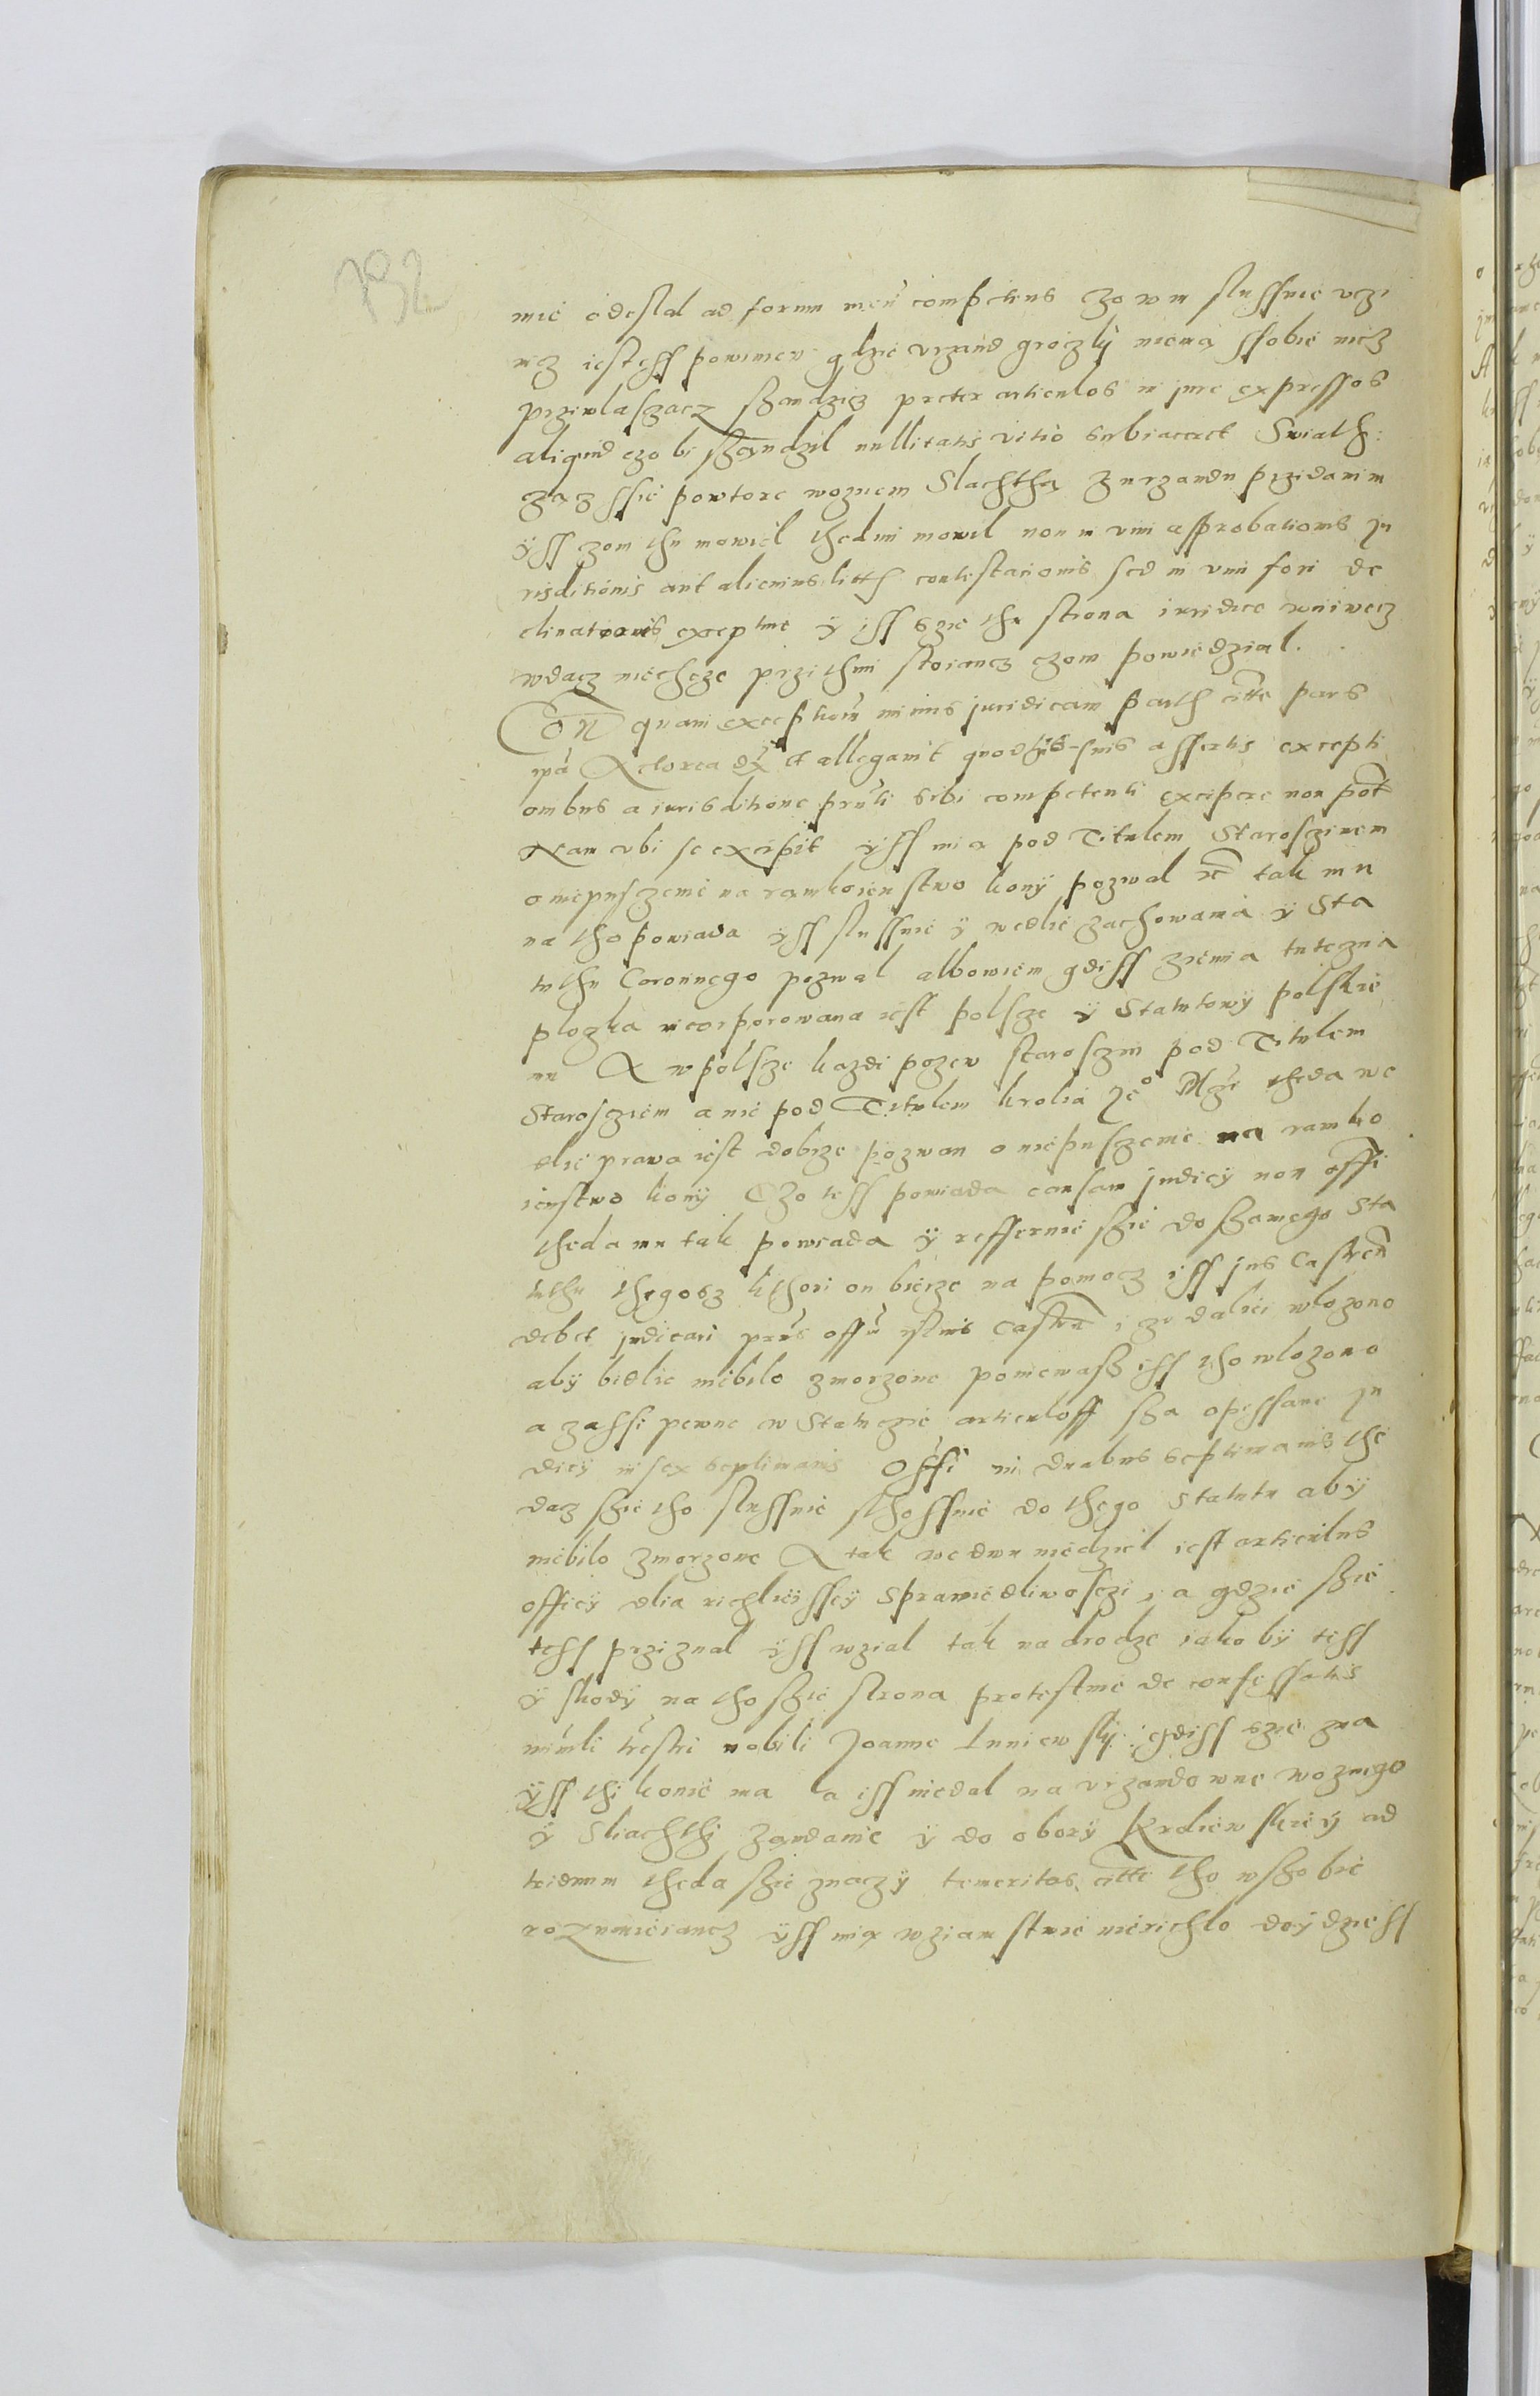 732
mie odeslal ad forum meū competens czo w m slussnie vczi
nicz iestess powinien gdzie vrzand groczkÿ niema ssobie nicz
prziwlasczacz sządzicz preter articulos in jure expressos
aliquid czo bi sządzil nullitatis vitio subiaceret Swiath:
zas ssie powtore woznem Slachthą z urzandu przidanim
ÿss zom thu mowiel thedim mowil non in vim approbationis ju
risditionis aut alicuius litth contestacionis sed in vim fori de
clinationis exceptiue ÿ iss szie tha strona iuridice wniwecz
wdacz niechcze przithim stoiancz czom powiedzial.
Con quam exceptioū minus juridicam parth citte pars
ipā Actorea dx et allegauit quod his suis assertis excepti
onibus a iurisditione prnti sibi competenti excipere non pot
Nam vbi se excipit ÿss mia pod Titulem Starosczinem
o niepusczenie na ramkoienstwo konÿ pozwal rc tak mu
na tho powiada ÿss slussnie ÿ wedlie zachowania ÿ Sta
tuthu Coronnego pozwal albowiem gdiss ziemia tuteczna
ploczka incorporowana iest polscze ÿ Statutowÿ polskie
mu A w polscze kazdi pozew starosczin pod Titulem
Starosczÿem a nie pod Titulem krolia Je° Mczi theda we
dlie prawa iest dobrze pozwan o niepusczenie na ramko
ienstwo konÿ Czo tess powiada causam judicÿ non offi
theda mu tak powiada ÿ refferuie szie do szamego Sta
tuthu thegosz kthori on bierze na pomocz iss jus Castren
debet judicari prus offū istius Castrn, ze daliei wlozono
abÿ bidlie niebilo zmorzone poniewasz iss tho wlozono
a zassi pewne w Statuczie articuloff sza opissane Ju
dicÿ in sex septimanis Offi in duabus septimanis the
dacz szie tho slussnie sthossuie do thego Statutu abÿ
niebilo zmorzone A tak we dwu niedziel iest articulus
officÿ dlia richliêissey sprawiedliwosczi, a gdzie szie
tess prziznal ÿss wzial tak na drodze iako bÿ tess
ÿ skodÿ na tho szie strona protestuie de confessatis
nimli trestri nobili Joanne Luniewskÿ: gdiss szie zna
ÿss thi konie ma a iss niedal na vrzandowne woznego
ÿ Sliachthi ządanie ÿ do oborÿ krolieẇskieÿ ad
triduum theda szie znaczÿ temeritas, citte tho wszobie
rozumieiancz ÿss mią wzianstwie nierichlo doÿdziess